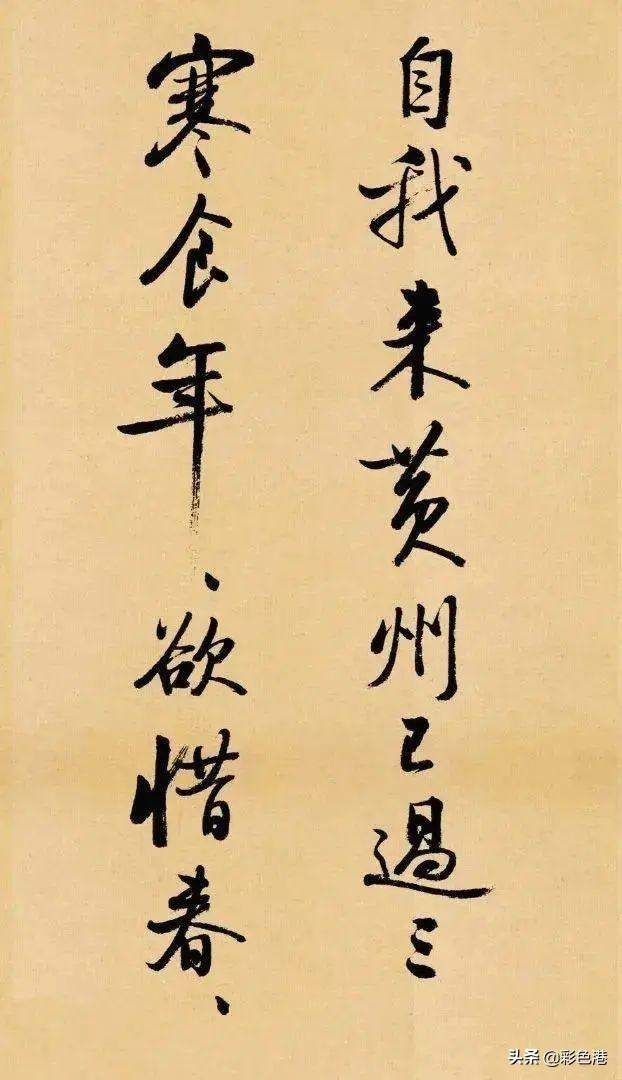 自我来黄州已過三
寒食年、欲惜春、
头条 @彩色港